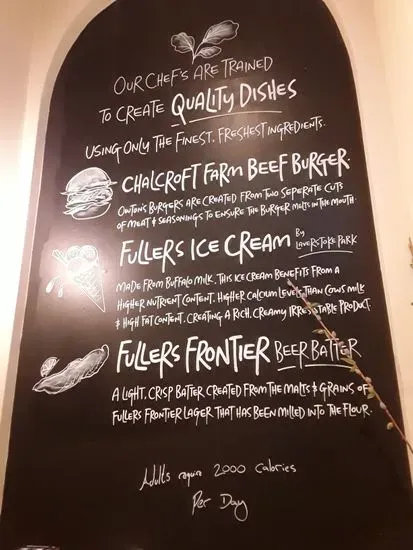 OUR CHEF'S ARE TRAINED
TO CREATE QUALITY DISHES
USING ONLY THE FINEST, FRESHEST INGREDIENTS.
CHALCROFT FARM BEEF BURGER.
OWTON'S BURGERS ARE CREATED FROM TWO SEPERATE CUTS
OF MEAT & SEASONINGS TO ENSURE THE BURGER MELTS IN THE MOUTH.
FULLERS ICE CREAM By LAVERSTOKE PARK
MADE FROM BUFFALO MILK. THIS ICE CREAM BENEFITS FROM A
HIGHER NUTRIENT CONTENT. HIGHER CALCIUM LEVELS THAN COWS MILK
& HIGH FAT CONTENT. CREATING A RICH, CREAMY IRRESISTABLE PRODUCT.
FULLERS FRONTIER BEER BATTER
A LIGHT, CRISP BATTER CREATED FROM THE MALTS & GRAINS OF
FULLERS FRONTIER LAGER THAT HAS BEEN MILLED INTO THE FLOUR.
Adults require 2000 Calories
Per Day